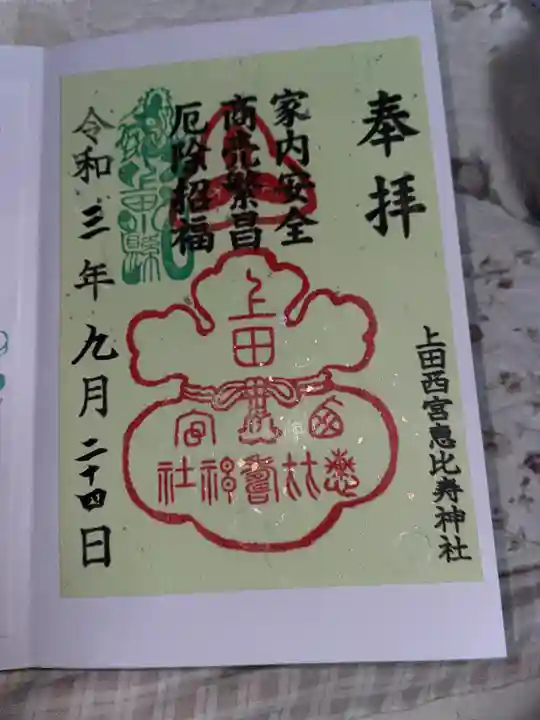 奉拝
上田西宮恵比寿神社
家内安全
商売繁昌
厄除招福
上田
西宮
恵比寿神社
令和三年九月二十四日